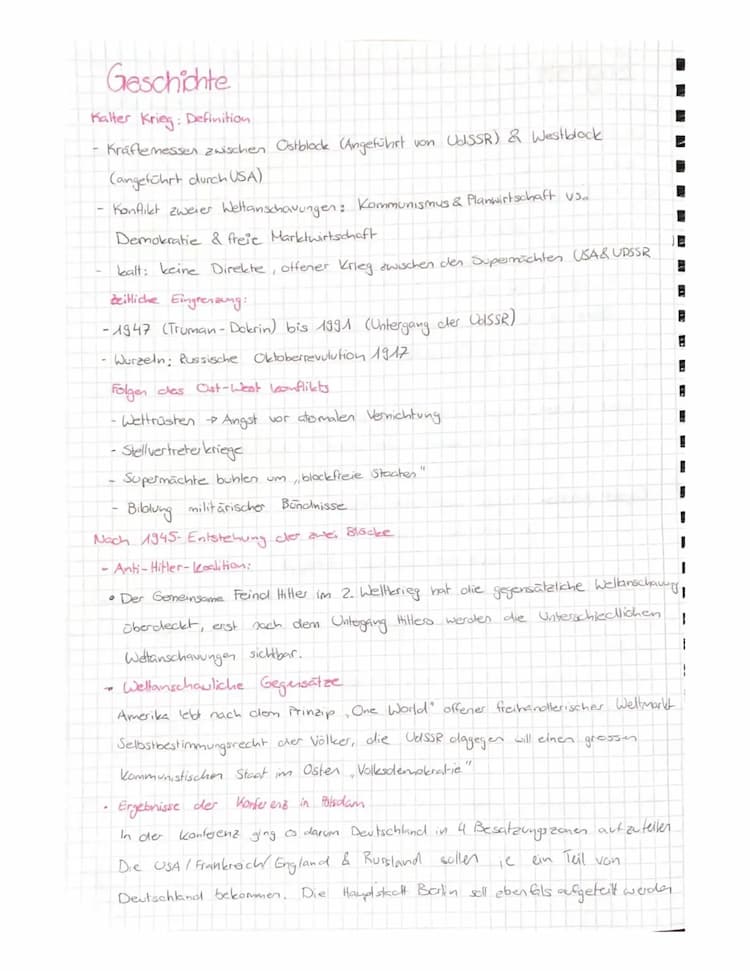 Geschichte
Kalter Krieg: Definition
- Kräftemessen zwischen Ostblock (Angeführt von UdSSR) & Westblock
(angeführt durch USA)
- Konflikt zweier Weltanschauungen: Kommunismus & Planwirtschaft vs.
Demokratie & freie Marktwirtschaft
- kalt: keine Direkte, offener Krieg zwischen den Supermächten USA & UDSSR
zeitliche Eingrenzung:
- 1947 (Truman-Dokrin) bis 1991 (Untergang der UdSSR)
- Wurzeln: Russische Oktoberrevulution 1917
Folgen des Ost-West konflikts
- Wettrüsten → Angst vor atomalen Vernichtung
- Stellvertreterkriege
- Supermächte buhlen um „blockfreie Staaten"
- Bildung militärischer Bündnisse
Nach 1945- Entstehung der zwei Blöcke
- Anti-Hitler-koalition:
• Der Gemeinsame Feind Hitler im 2. Weltkrieg hat die gegensätzliche Weltanschauung
überdeckt, erst nach dem Untergang Hitlers werden die Unterschiedlichen
Weltanschauungen sichtbar.
→ Weltanschauliche Gegensätze
Amerika lebt nach dem Prinzip „One World" offener freihandlerischer Weltmarkt
Selbstbestimmungsrecht der Völker, die UdSSR dagegen will einen grossen
kommunistischen Staat im Osten „Volksdemokratie"
• Ergebnisse der Konferenz in Potsdam
In der konferenz ging es darum Deutschland in 4 Besatzungszonen aufzuteilen
Die USA / Frankreich / England & Russland sollen je ein Teil von
Deutschland bekommen. Die Hauptstadt Berlin soll ebenfals aufgeteilt werden